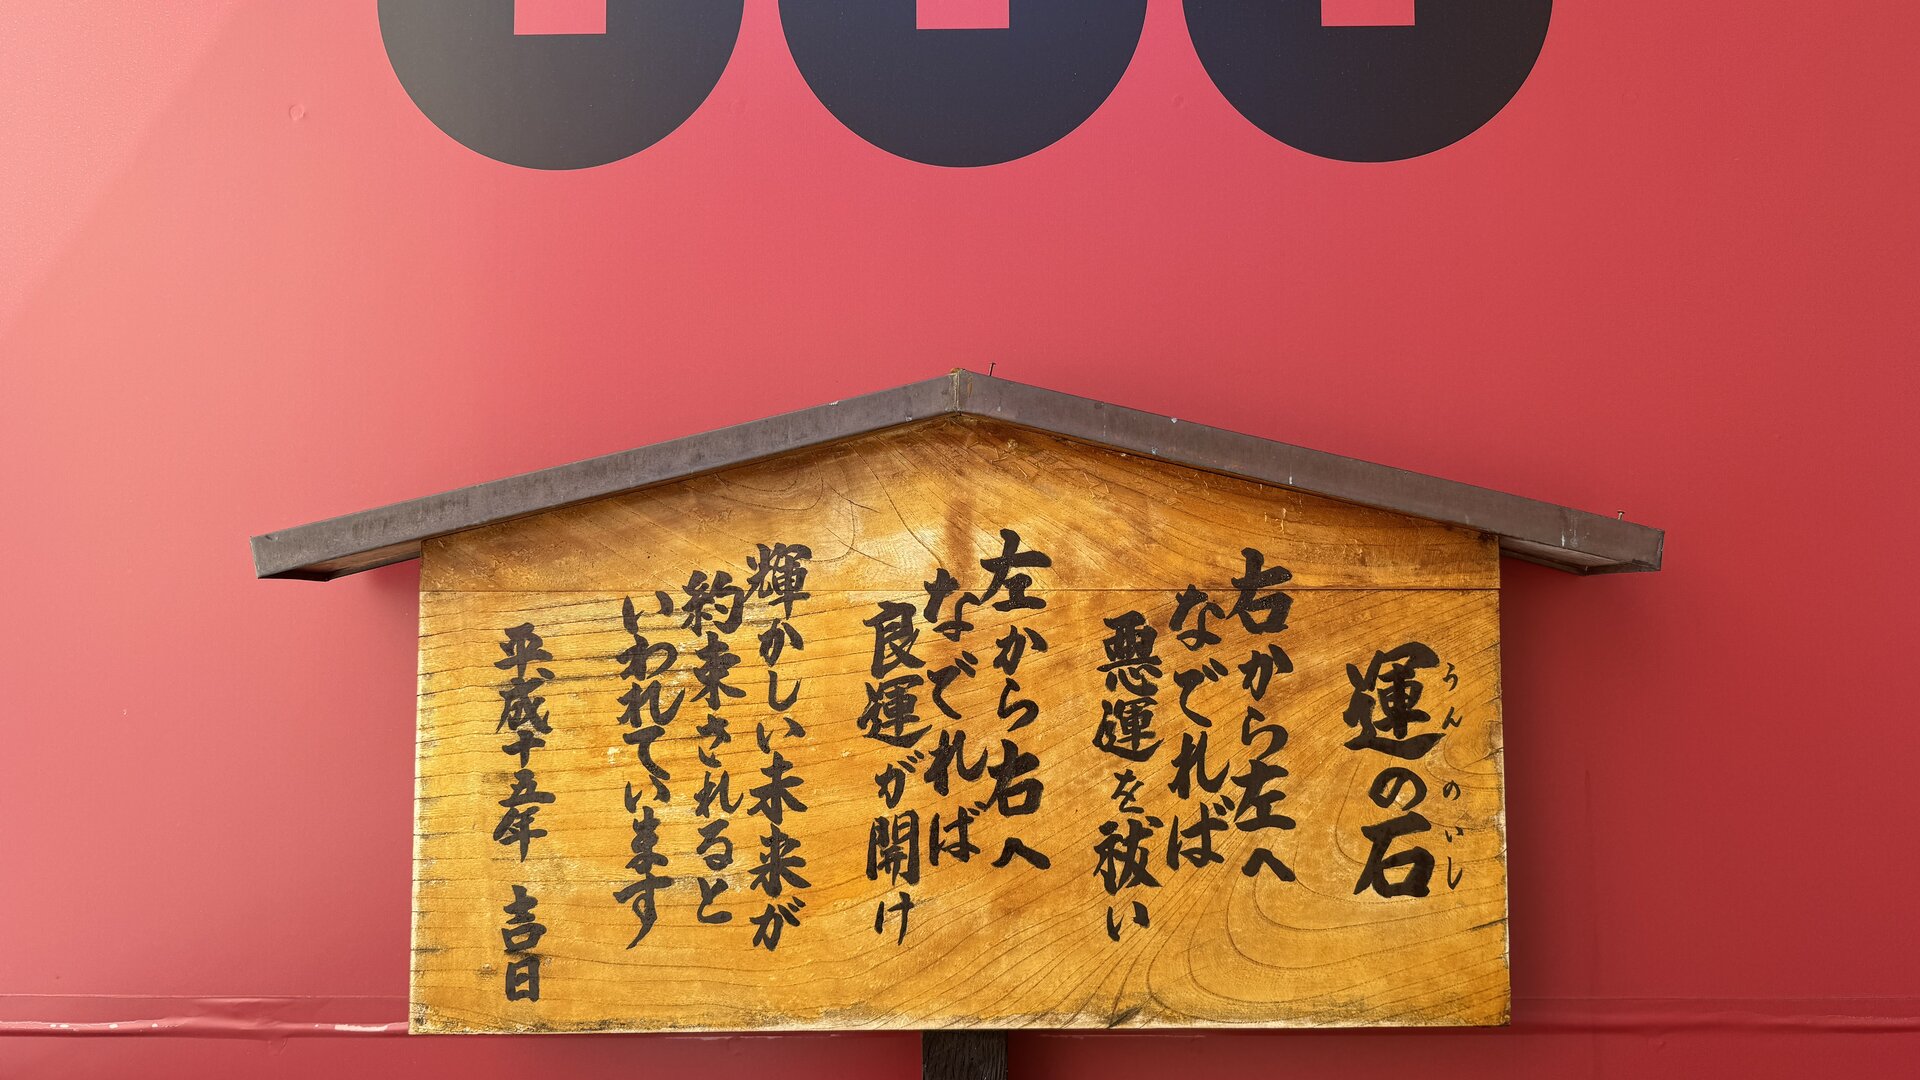 運の石
うんのいし
右から左へ
なでれば
悪運を祓い
左から右へ
なでれば
良運が開け
輝かしい未来が
約束されると
いわれています
平成十五年 吉日